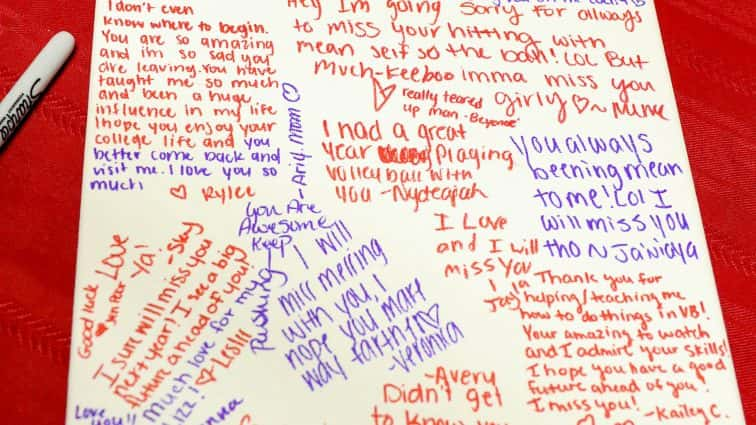 I don't even
know where to begin.
You are so amazing
and im so sad you
are leaving. You have
taught me so much
and been a huge
influence in my life
I hope you enjoy your
college life and you
better come back and
visit me. I love you so
much!
♡ Rylee
Hey Im going
Sorry for always
to miss your hitting with
mean self so the ball! LOL But
Much-Keeboo Imma miss you
girly ♡~ Mimi
really teared
up man -Beyonce
I had a great
year Playing
volleyball with
you -Nydeajah
- Arig Mom ♡
You always
beening mean
to me! Lol I
will miss you
tho ~ Janiaya
You Are
Awesome
Keep
Pushing!
I will
miss messing
with you, I
hope you make
way farther ♡
-Veronka
I Love
and I will
miss You
Thank you for
helping/teaching me
how to do things in VB!
Your amazing to watch
and I admire your skills!
I hope you have a good
future ahead of you!
I miss you!
-Kailey C.
Good luck
Love
Ya!
-Sky
I sure will miss you
next year! I see a big
future ahead of you!
♡ Leslii
Much love for my
Lizz!
Love
You!!
-Avery
Didn't get
to know you
Sharpie